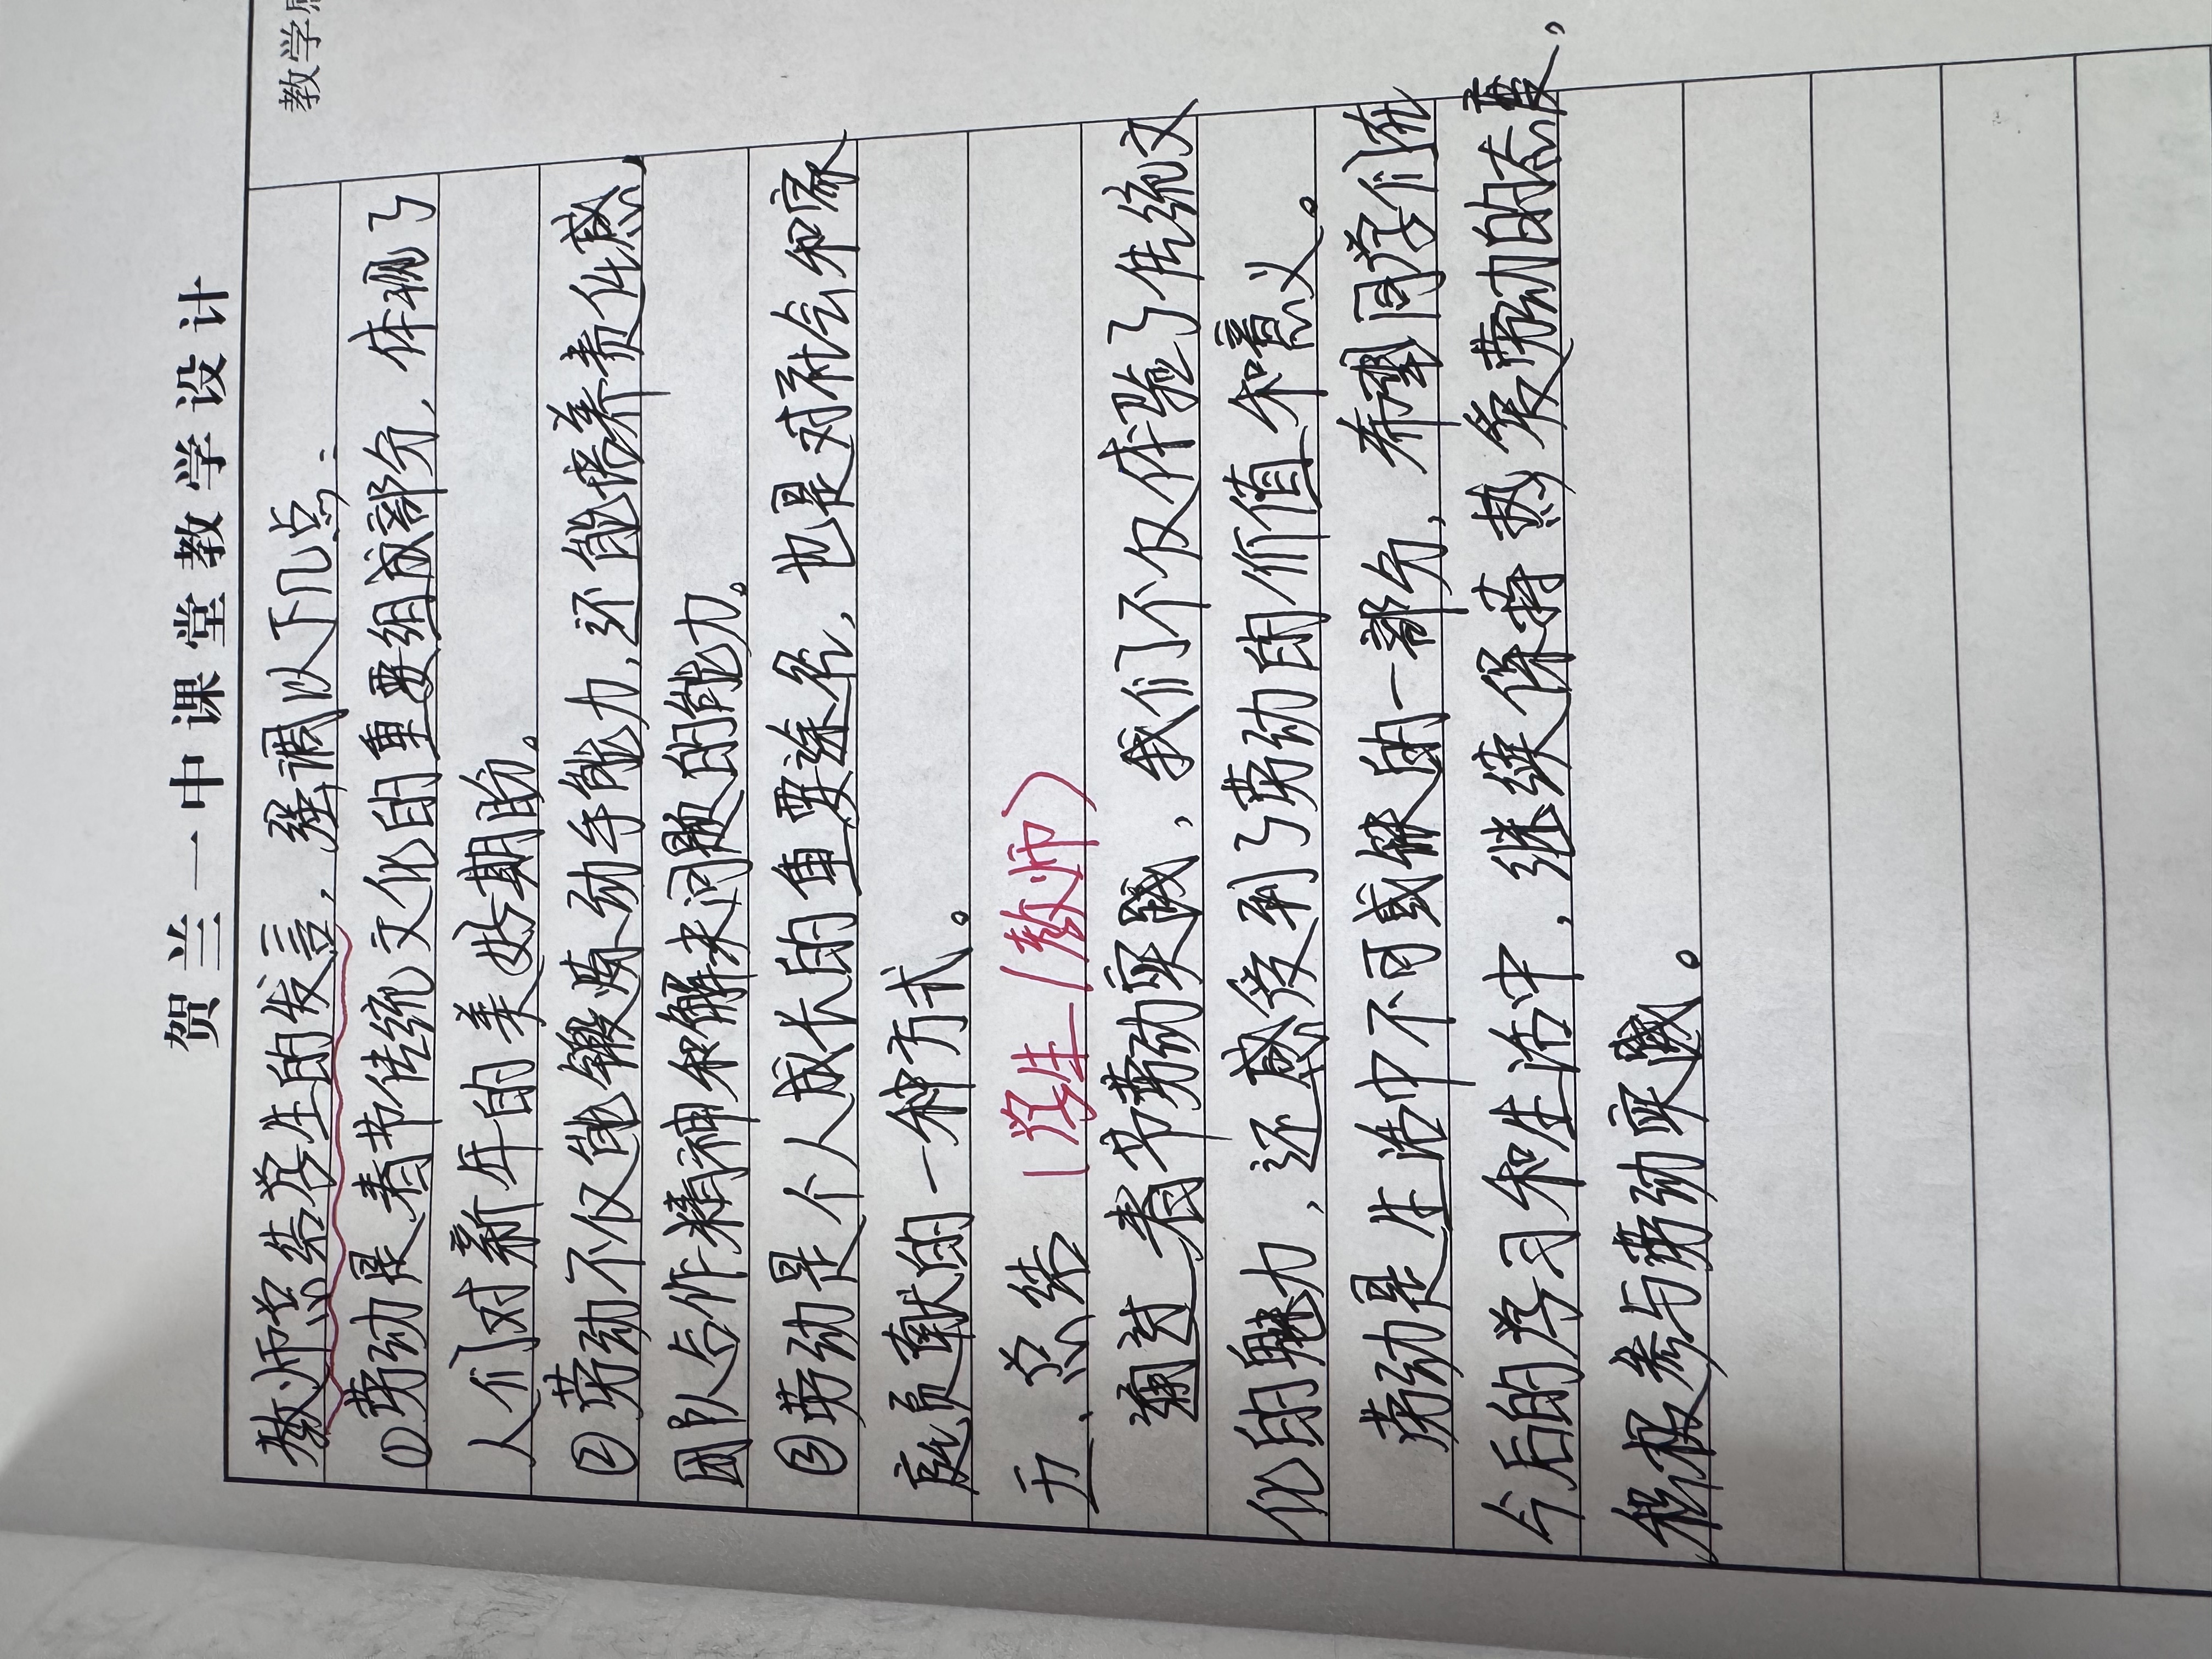 贺兰一中课堂教学设计
教学
教师总结学生的发言，强调以下几点：
①劳动是春节传统文化的重要组成部分，体现了
人们对新年的美好期盼。
②劳动不仅能锻炼动手能力，还能培养责任感、
团队合作精神和解决问题的能力。
③劳动是个人成长的重要途径，也是对社会和家
庭贡献的一种方式。
五、总结（学生/教师）
通过春节劳动实践，我们不仅体验了传统文
化的魅力，还感受到了劳动的价值和意义。
劳动是生活中不可或缺的一部分，希望同学们在
今后的学习和生活中，继续保持热爱劳动的态度。
积极参与劳动实践。